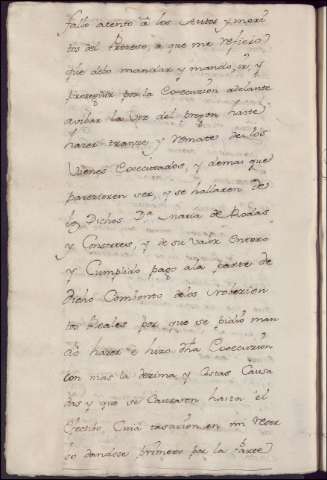 fallo atento â los Autos y meri
tos del Proceso, a que me refiero
que debo mandar y mando, yr, y
proseguir por la Execucion adelante
avibar la Voz del pregon hasta
hazer tranze y remate de los
Vienes Executados, y demas que
parezieren ser, y se hallaren de
los Dichos Da. Maria de Rodas
y Consortes, y de su valor entero
y Cumplido pago ala parte de
dicho Combento delos
tos Reales por que se pidio man
do hazer e hizo dha Execucion
con mas la dezima y Costas Causa
das y que se Causaren hasta el
efectibo, Cuia tasacion en mi reser
bo dandose primero por la parte